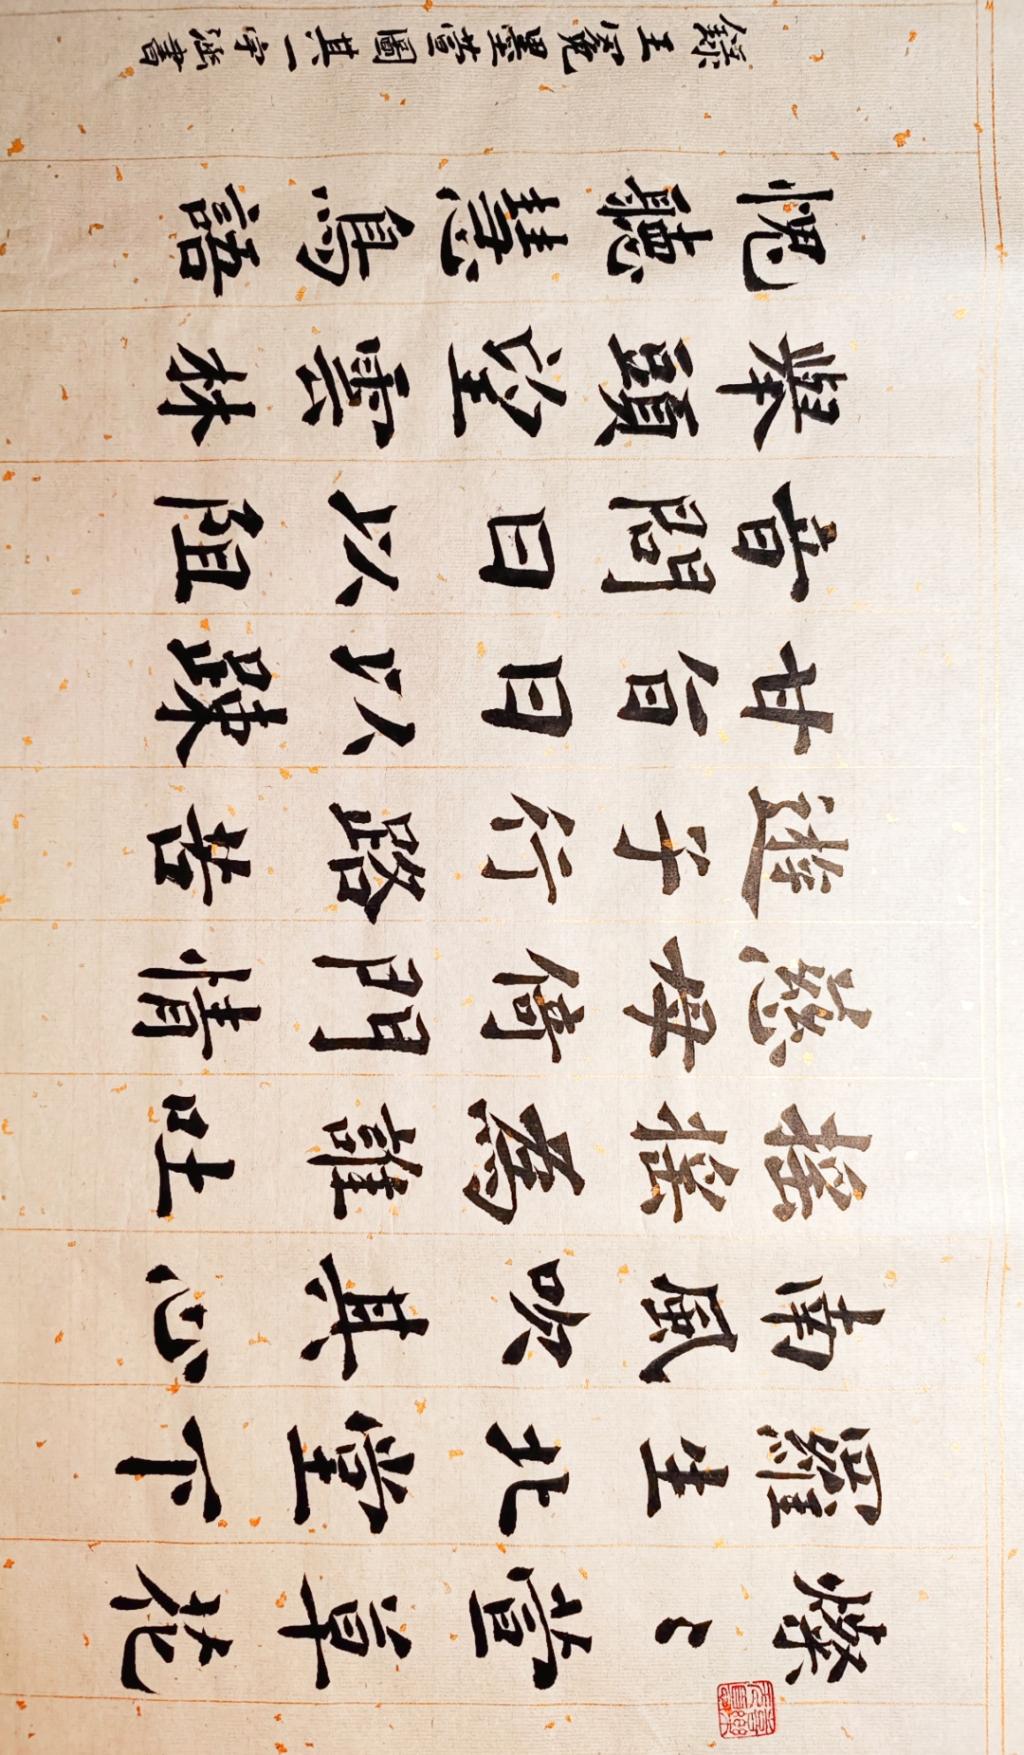 燦〻萱草花
羅生北堂下
南風吹其心
搖搖為誰吐
慈母倚門情
遊子行路苦
甘旨日以踈
音問日以阻
舉頭望雲林
愧聽慧鳥語
錄王冕墨萱圖其一書